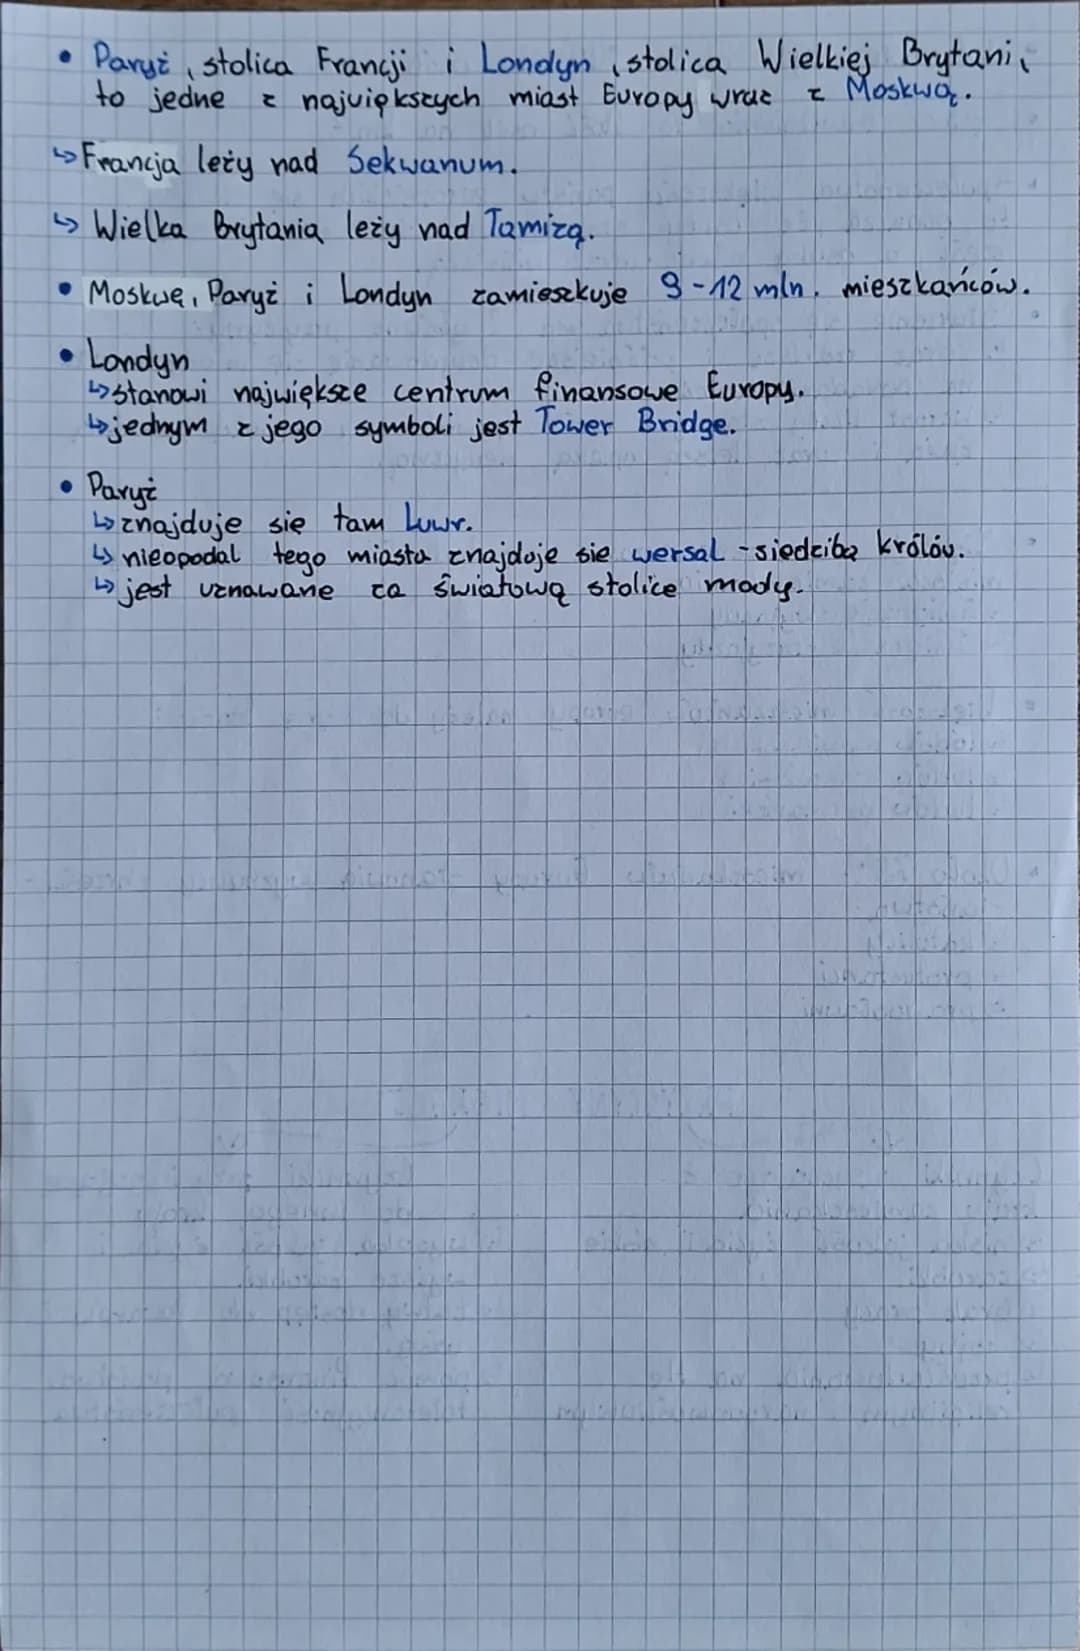 • Paryż, stolica Francji i Londyn, stolica Wielkiej Brytani,
to jedne z największych miast Europy wraz z Moskwą.
↳ Francja leży nad Sekwanum.
↳ Wielka Brytania leży nad Tamizą.
• Moskwę, Paryż i Londyn zamieszkuje 9-12 mln. mieszkańców.
• Londyn
↳ stanowi największe centrum finansowe Europy.
↳ jednym z jego symboli jest Tower Bridge.
• Paryż
↳ znajduje się tam Luwr.
↳ nieopodal tego miasta znajduje sie wersal - siedzibą królów.
↳ jest uznawane za światową stolice mody.